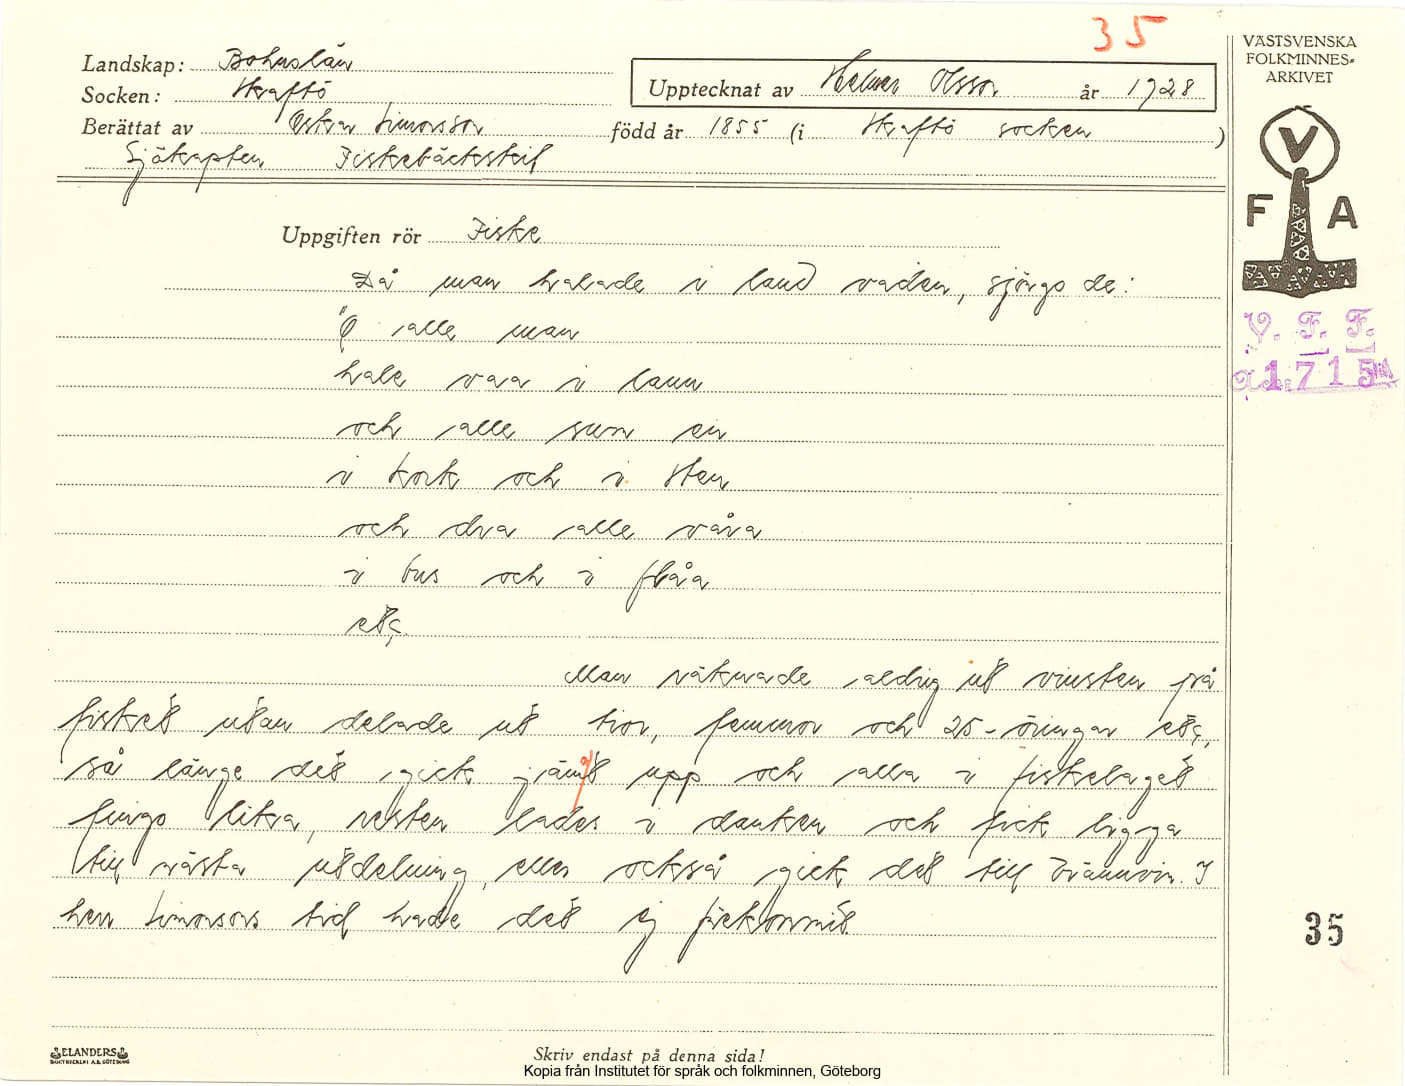 35
Landskap: Bohuslän
Socken: Skaftö
Upptecknat av Helmer Olsson år 1928
Berättat av Oskar Simonsson född år 1855 (i Skaftö socken)
Sjökapten Fiskebäckskil
VÄSTSVENSKA
FOLKMINNES-
ARKIVET
V
F A
V. F. F.
1715
Uppgiften rör Fiske
Då man halade i land vaden, sjöngo de:
"O alle man
hale vaa i lann
och alle sum en
i kork och i sten
och dra alle våra
i bus och i flåa
etc.
Man räknade aldrig ut vinsten på
fisket utan delade ut tior, femmor och 25-öringar etc.,
så länge det gick jämt upp och alla i fiskelaget
fingo likra, resten lades i danken och fick ligga
till nästa utdelning, eller också gick det till brännvin. I
herr Simonsons tid hade det ej förekommit.
35
ELANDERS
BOKTRYCKERI A.B. GÖTEBORG
Skriv endast på denna sida!
Kopia från Institutet för språk och folkminnen, Göteborg